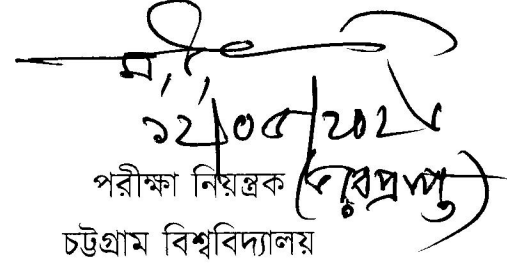 ১২/০৫/২০২৫
পরীক্ষা নিয়ন্ত্রক (ভারপ্রাপ্ত)
চট্টগ্রাম বিশ্ববিদ্যালয়